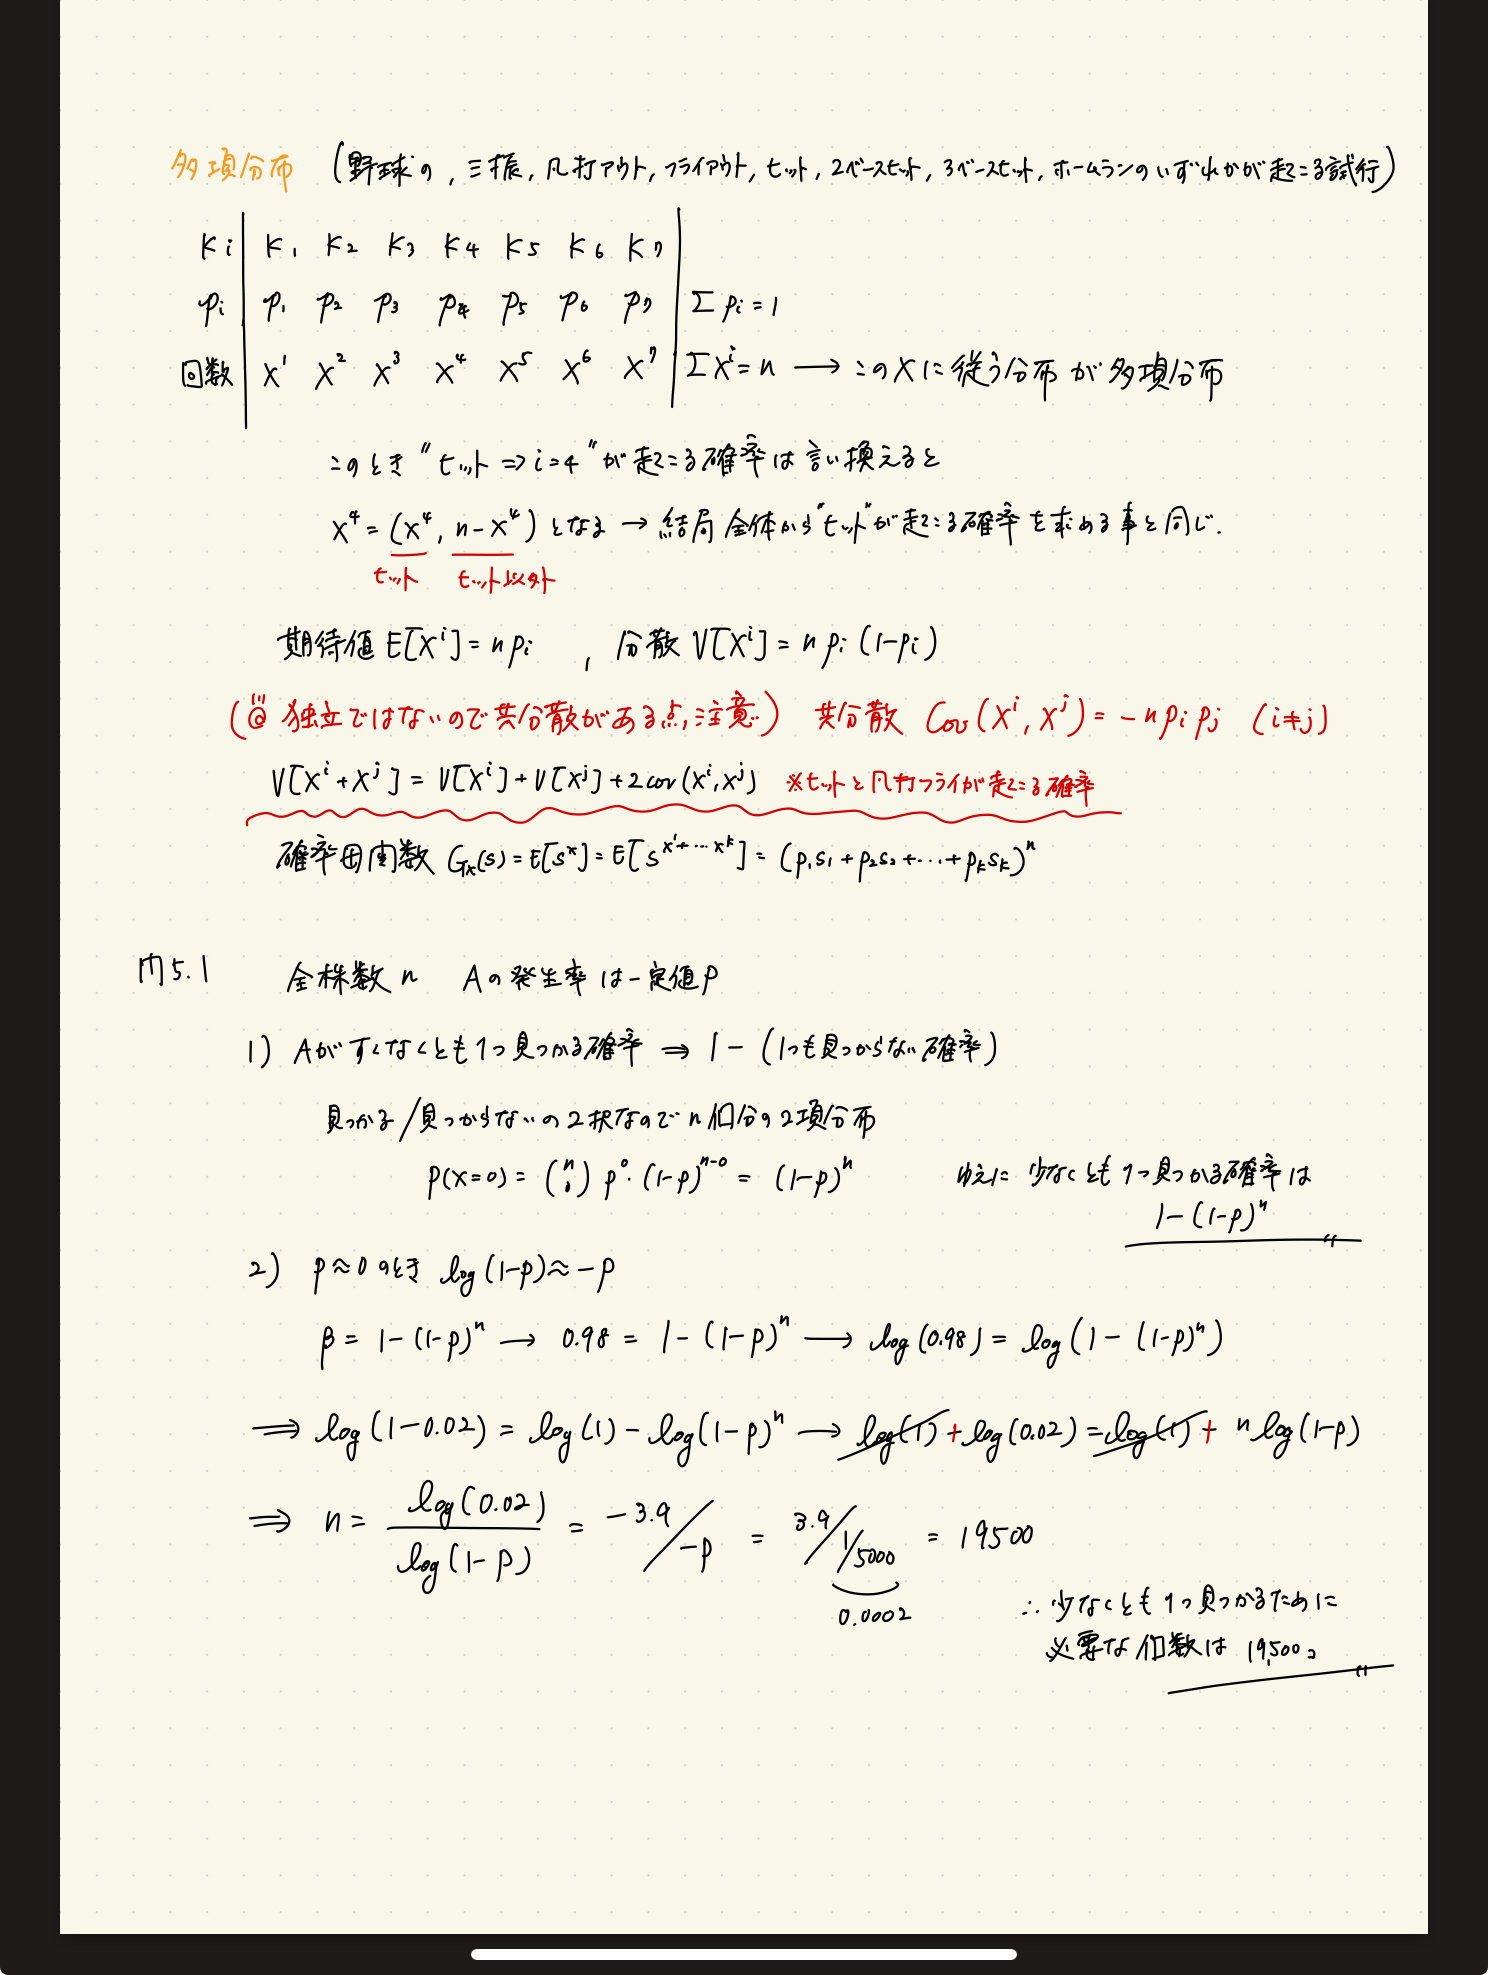 多項分布 (野球の, 三振, 凡打アウト, フライアウト, ヒット, 2ベースヒット, 3ベースヒット, ホームランのいずれかが起こる試行)
Ki K1 K2 K3 K4 K5 K6 K7
pi p1 p2 p3 p4 p5 p6 p7 Σpi=1
回数 X¹ X² X³ X⁴ X⁵ X⁶ X⁷ ΣXⁱ=n → このXに従う分布が多項分布
このとき "ヒット⇒i=4" が起こる確率は言い換えると
X⁴=(X⁴, n-X⁴) となる → 結局全体から"ヒット"が起こる確率を求める事と同じ.
ヒット ヒット以外
期待値 E[Xⁱ]=npi , 分散 V[Xⁱ]=npi(1-pi)
(独立ではないので共分散がある点, 注意) 共分散 Cov(Xⁱ, Xʲ)=-npipj (i≠j)
V[Xⁱ+Xʲ]=V[Xⁱ]+V[Xʲ]+2cov(Xⁱ,Xʲ) ※ヒットと凡打フライが起こる確率
確率母関数 Gx(s)=E[sˣ]=E[s^{X¹+…Xᵏ}]=(p1s1+p2s2+…+pksk)ⁿ
問5.1 全株数n Aの発生率は一定値p
1) Aがすくなくとも1つ見つかる確率 ⇒ 1-(1つも見つからない確率)
見つかる/見つからないの2択なのでn個分の2項分布
P(X=0)=(n 0)p⁰·(1-p)ⁿ⁻⁰=(1-p)ⁿ ゆえに少なくとも1つ見つかる確率は
1-(1-p)ⁿ〃
2) p≈0のとき log(1-p)≈-p
β=1-(1-p)ⁿ → 0.98=1-(1-p)ⁿ → log(0.98)=log(1-(1-p)ⁿ)
⇒ log(1-0.02)=log(1)-log(1-p)ⁿ → log(1)+log(0.02)=log(1)+nlog(1-p)
⇒ n=log(0.02)/log(1-p)=-3.9/-p=3.9/1/5000=19500
0.0002
∴少なくとも1つ見つかるために
必要な個数は 19,500コ〃